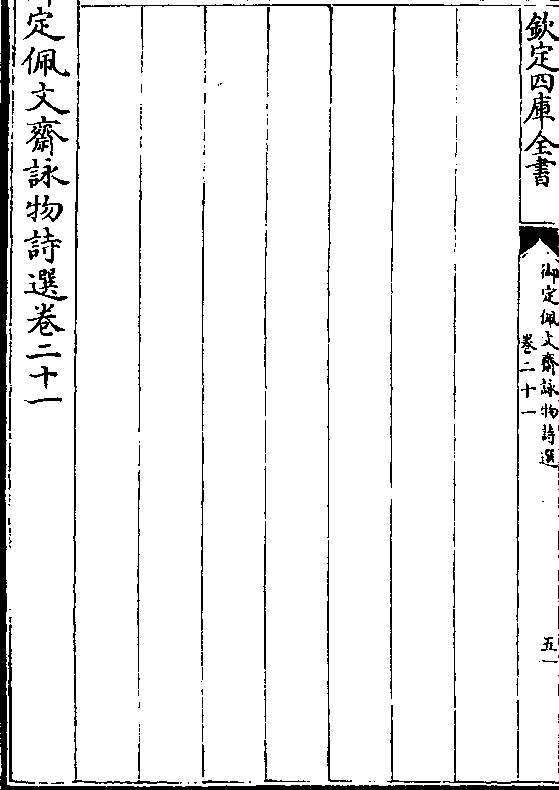 欽定四庫全書
御定佩文齋詠物詩選
卷二十一
五一
定佩文齋詠物詩選卷二十一